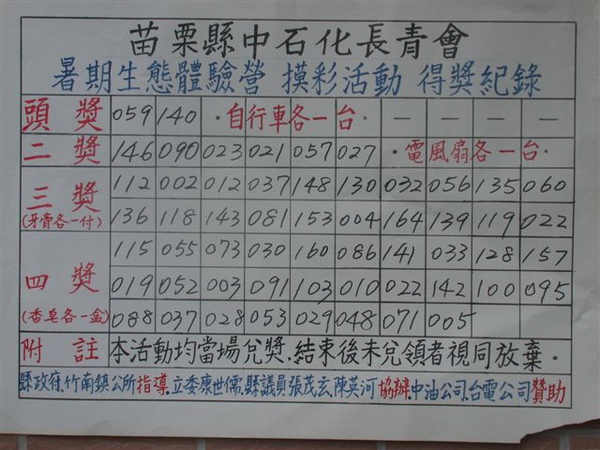 苗栗縣中石化長青會
暑期生態體驗營 摸彩活動 得獎紀錄
頭獎 059 140 ·自行車各一台· — — — —
二獎 146 090 023 021 057 027 ·電風扇各一台·
三獎 112 002 012 037 148 130 032 056 135 060
(牙膏各一付) 136 118 143 081 153 004 164 139 119 022
115 055 073 030 160 086 141 033 128 157
四獎 019 052 003 091 103 010 022 142 100 095
(香皂各一盒) 088 037 028 053 029 048 071 005
附註 本活動均當場兌獎.結束後未兌領者視同放棄.
縣政府.竹南鎮公所指導.立委康世儒.縣議員張茂玄.陳英河協辦.中油公司.台電公司贊助